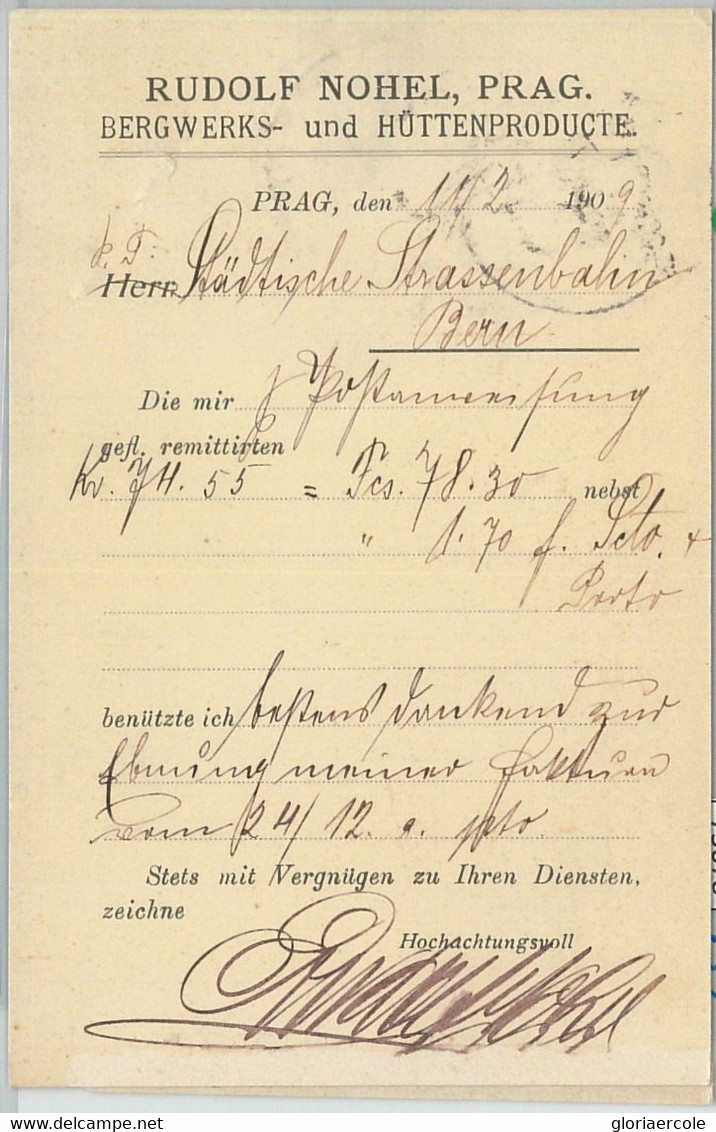 RUDOLF NOHEL, PRAG.
BERGWERKS- und HÜTTENPRODUCTE.
PRAG, den 11/2 1909
P. T.
Herrn Städtische Strassenbahn
Bern
Die mir p Postanweisung
gefl. remittirten
Kr. 74.55 = Fcs. 78.30 nebst
" 1.70 f. Scto. +
Porto
benützte ich bestens dankend zur
Ebnung meiner Fakturen
vom 24/12. a. pto.
Stets mit Vergnügen zu Ihren Diensten,
zeichne
Hochachtungsvoll
Rudolf Nohel
gloriaercole